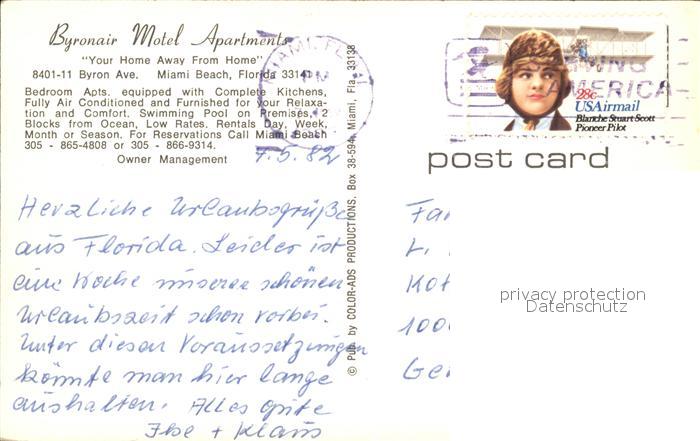 Byronair Motel Apartments
"Your Home Away From Home"
8401-11 Byron Ave. Miami Beach, Florida 33141
Bedroom Apts. equipped with Complete Kitchens,
Fully Air Conditioned and Furnished for your Relaxa-
tion and Comfort. Swimming Pool on Premises, 2
Blocks from Ocean, Low Rates, Rentals Day, Week,
Month or Season. For Reservations Call Miami Beach
305 - 865-4808 or 305 - 866-9314.
Owner Management
7.5.82
Herzliche Urlaubsgrüße
aus Florida. Leider ist
eine Woche unserer schönen
Urlaubszeit schon vorbei.
Unter diesen Voraussetzungen
könnte man hier lange
aushalten. Alles gute
Ilse + Klaus
© Pub. by COLOR-ADS PRODUCTIONS, Box 38-594, Miami, Fla. 33138
MIAMI, FL
PM
AMERICA
28c
USAirmail
Blanche Stuart Scott
Pioneer Pilot
post card
Fa
L.
100
Ge
privacy protection
Datenschutz